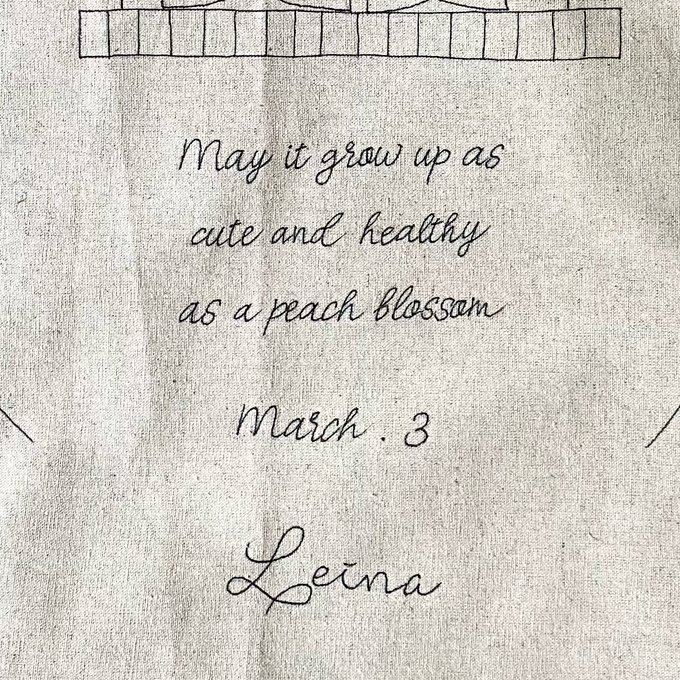 May it grow up as
cute and healthy
as a peach blossom
March . 3
Leina